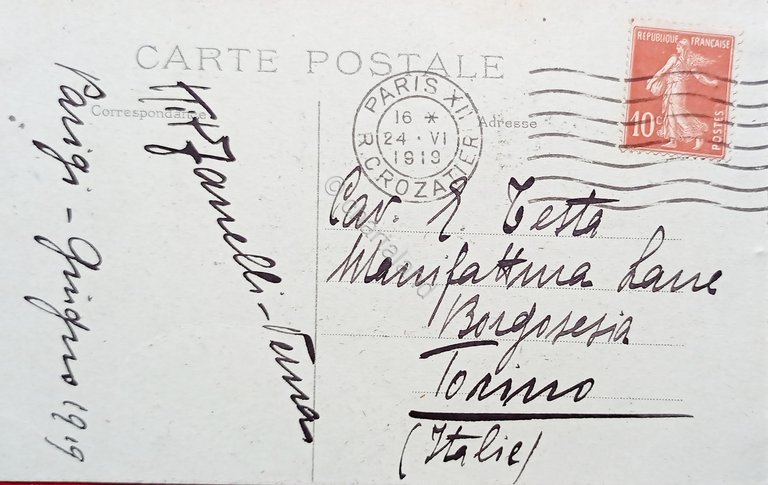 CARTE POSTALE
Correspondance
Adresse
REPUBLIQUE FRANÇAISE
10c
POSTES
PARIS XII
16 *
24 · VI
1919
R. CROZATIER
Cav. E. Testa
Manifattura Lane
Borgosesia
Torino
(Italie)
Zanelli-
Parigi - Giugno 1919